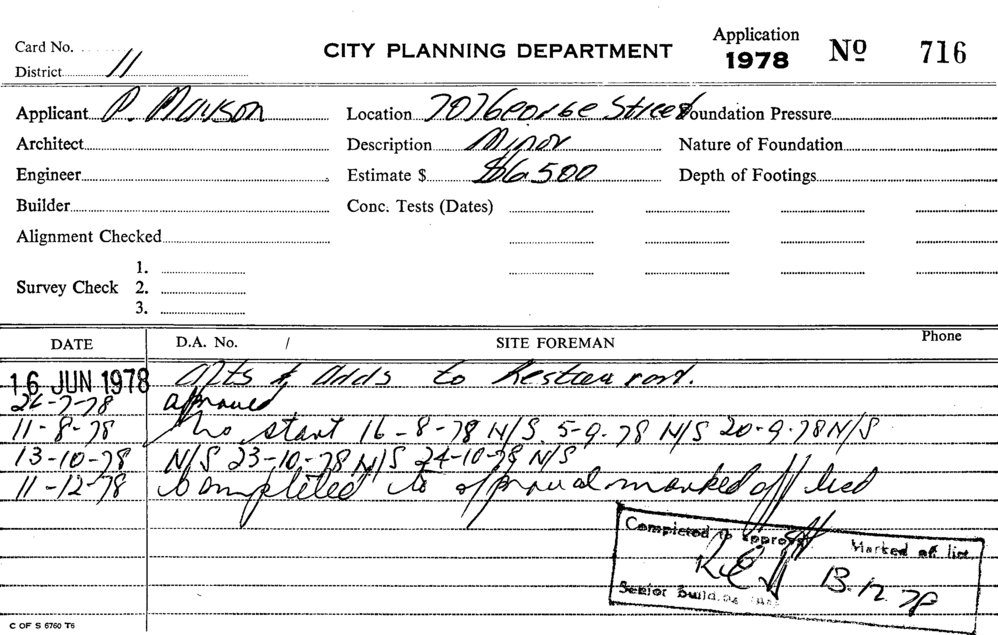 Card No.
CITY PLANNING DEPARTMENT
Application
1978
No 716
District 11
Applicant P. Mawson Location 707 George Street Foundation Pressure
Architect Description Minor Nature of Foundation
Engineer Estimate $ $6500 Depth of Footings
Builder Conc. Tests (Dates)
Alignment Checked
Survey Check 1.
2.
3.
DATE D.A. No. / SITE FOREMAN Phone
16 JUN 1978 Alts & adds to Restaurant.
-7-78 approved
11-8-78 No start 16-8-78 N/S. 5-9-78 N/S 20-9-78 N/S
13-10-78 N/S 23-10-78 N/S 24-10-78 N/S
11-12-78 Completed to approval marked off
Completed to approval Marked off list
13.12.78
Senior Building
C OF S 6760 T6